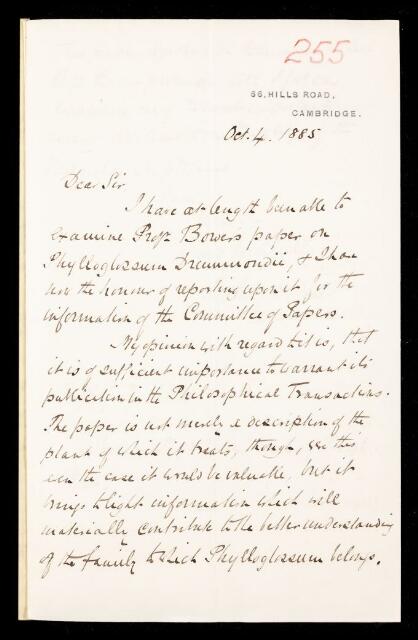 255
66, HILLS ROAD,
CAMBRIDGE.
Oct. 4. 1885
Dear Sir
I have at length been able to
examine Profr. Bower's paper on
Phylloglossum Drummondii, & I have
now the honour of reporting upon it for the
information of the Committee of Papers.
My opinion with regard to it is, that
it is of sufficient importance to warrant its
publication in the Philosophical Transactions.
The paper is not merely a description of the
plant of which it treats, though, were this
even the case it would be valuable, but it
brings to light information which will
materially contribute to the better understanding
of the family to which Phylloglossum belongs.